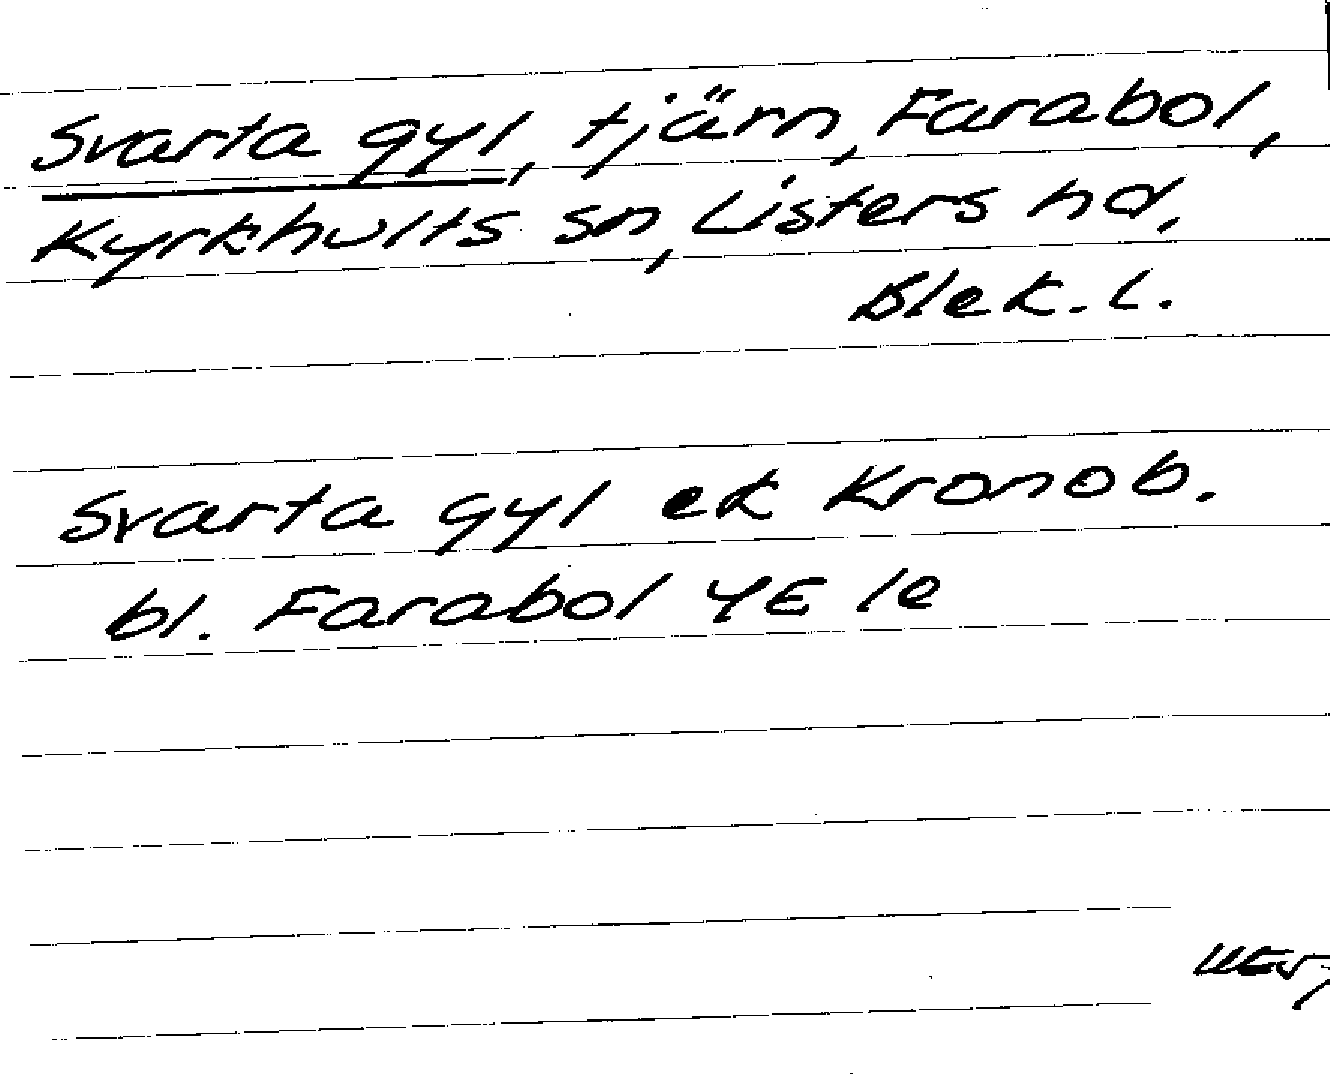 Svarta gyl, tjärn, Farabol,
Kyrkhults sn, Listers hd,
Blek. l.
Svarta gyl ek Kronob.
bl. Farabol 4E le